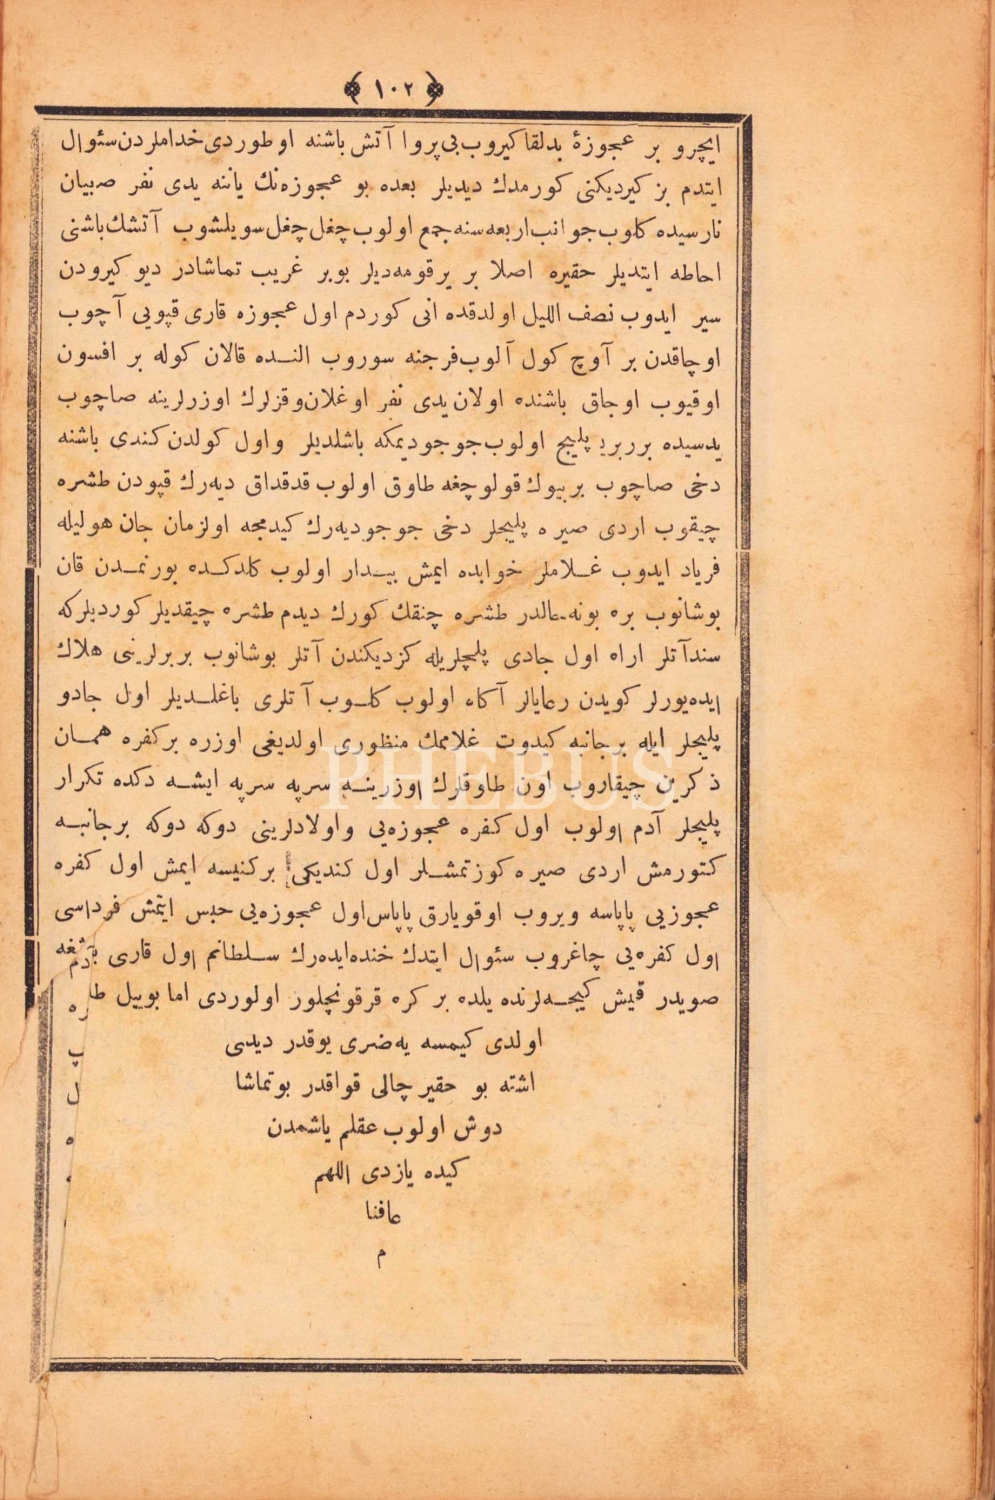 ﴿ ١٠٢ ﴾
ایچرو بر عجوزهٔ بدلقا کیروب بی پروا آتش باشنه اوطوردی خداملردن سئوال
ایتدم بز کیردیکنی کورمدك دیدیلر بعده بو عجوزه‌نك یاننه یدی نفر صبیان
نارسیده کلوب جوانب اربعه سنه جمع اولوب چغل چغل سویلشوب آتشك باشنی
احاطه ایتدیلر حقیره اصلا بر یر قومه‌دیلر بو بر غریب تماشادر دیو کیرودن
سیر ایدوب نصف اللیل اولدقده انی کوردم اول عجوزه قاری قپویی آچوب
اوچاقدن بر آوچ کول آلوب فرجنه سوروب النده قالان کوله بر افسون
اوقیوب اوجاق باشنده اولان یدی نفر اوغلان و قزلرك اوزرلرینه صاچوب
یدسیده بربر پلیچ اولوب جوجودیمکه باشلدیلر و اول کولدن کندی باشنه
دخی صاچوب بر بیوك قولوچغه طاوق اولوب قدقداق دیه‌رك قپودن طشره
چیقوب اردی صیره پلیجلر دخی جوجودیه‌رك کیدمجه اولزمان جان هولیله
فریاد ایدوب غلاملر خوابده ایمش بیدار اولوب کلدکده بورنمدن قان
بوشانوب بره بونه حالدر طشره چنقك کورك دیدم طشره چیقدیلر کوردیلرکه
سندآتلر اراه اول جادی پلیچلریله کزدیکندن آتلر بوشانوب بربرلرینی هلاك
ایده‌یورلر کویدن رعایالر آکاه اولوب کلوب آتلری باغلدیلر اول جادو
پلیجلر ایله بر جانبه کیدوت غلاممك منظوری اولدیغی اوزره بر کفره همان
ذکرین چیقاروب اون طاوقلرك اوزرینه سرپه سرپه ایشه دکده تکرار
پلیجلر آدم اولوب اول کفره عجوزه‌یی و اولادلرینی دوکه دوکه بر جانبه
کتورمش اردی صیره کوزتمشلر اول کندیکی بر کنیسه ایمش اول کفره
عجوزیی پاپاسه ویروب اوقویارق پاپاس اول عجوزه‌یی حبس ایتمش فرداسی
اول کفره‌یی چاغروب سئوال ایتدك خنده‌ایده‌رك سلطانم اول قاری
صویدر قیش کیجه‌لرنده یلده بر کره قرقونچلور اولوردی اما بوییل
اولدی کیمسه یه ضری یوقدر دیدی
اشته بو حقیر چالی قواقدر بوتماشا
دوش اولوب عقلم یاشمدن
کیده یازدی اللهم
عافنا
م
PHEBUS